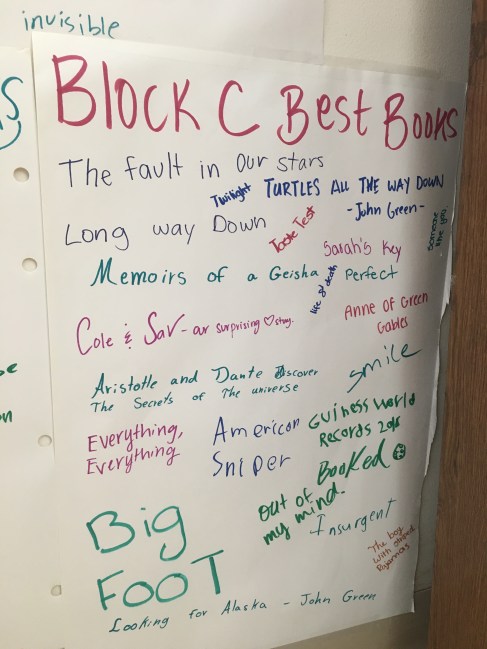 invisible
BLOCK C Best Books
The fault in our stars
Twilight
TURTLES ALL THE WAY DOWN
- John Green -
Long way Down
Taste Test
Someone like you
Sarah's Key
Memoirs of a Geisha
life or death
Perfect
Cole & Sav - our surprising ♡ story.
Anne of Green
Gables
Aristotle and Dante Discover
The Secrets of The universe
smile
Everything,
Everything
American
Sniper
Guiness World
Records 2016
Booked
out of
my mind.
Insurgent
Big
FOOT
The boy
with striped
Pyjamas
Looking for Alaska - John Green